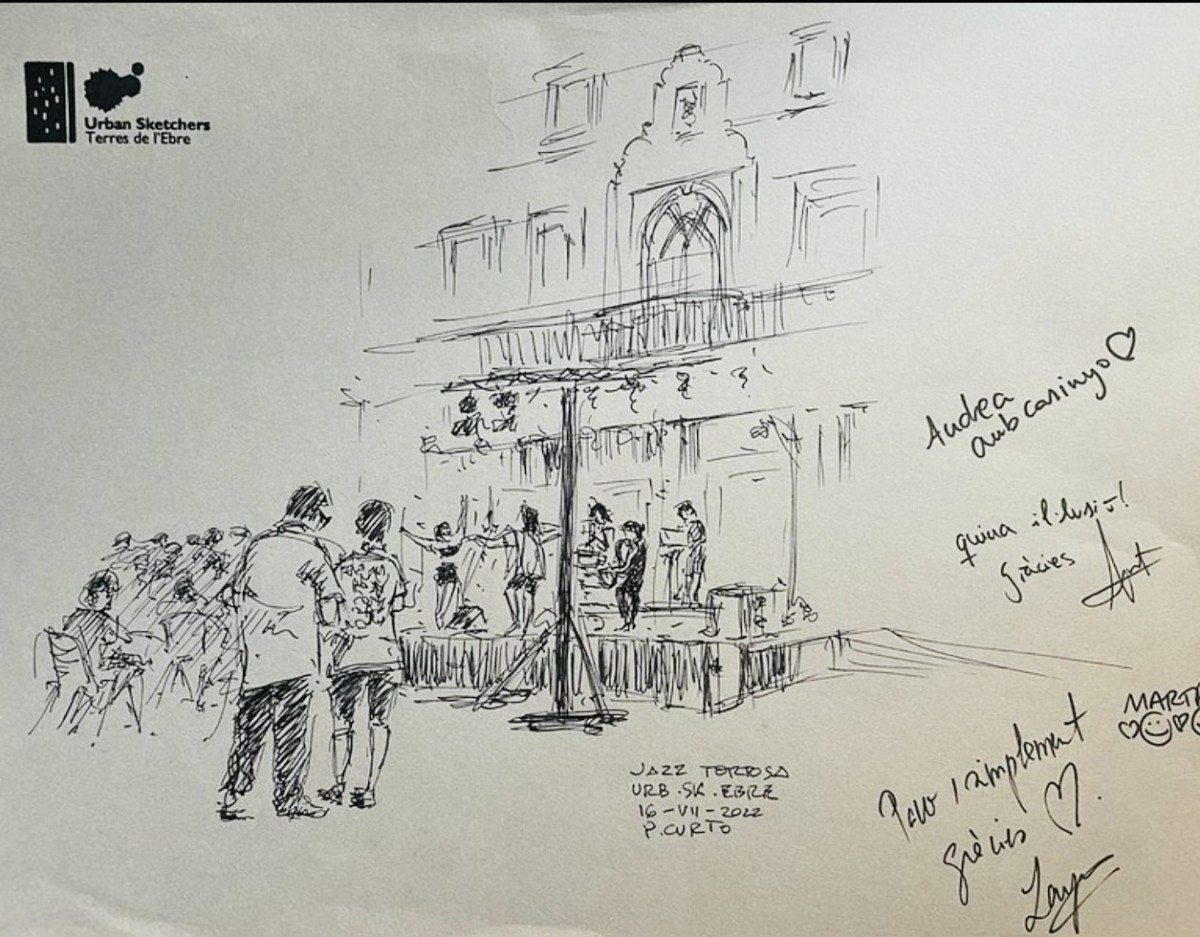 Urban Sketchers
Terres de l'Ebre
Andrea
amb carinyo
quina il·lusió!
Gràcies
JAZZ TORTOSA
URB.SK.EBRE
16-VII-2022
P.CURTO
MARTA
simplement
gràcies